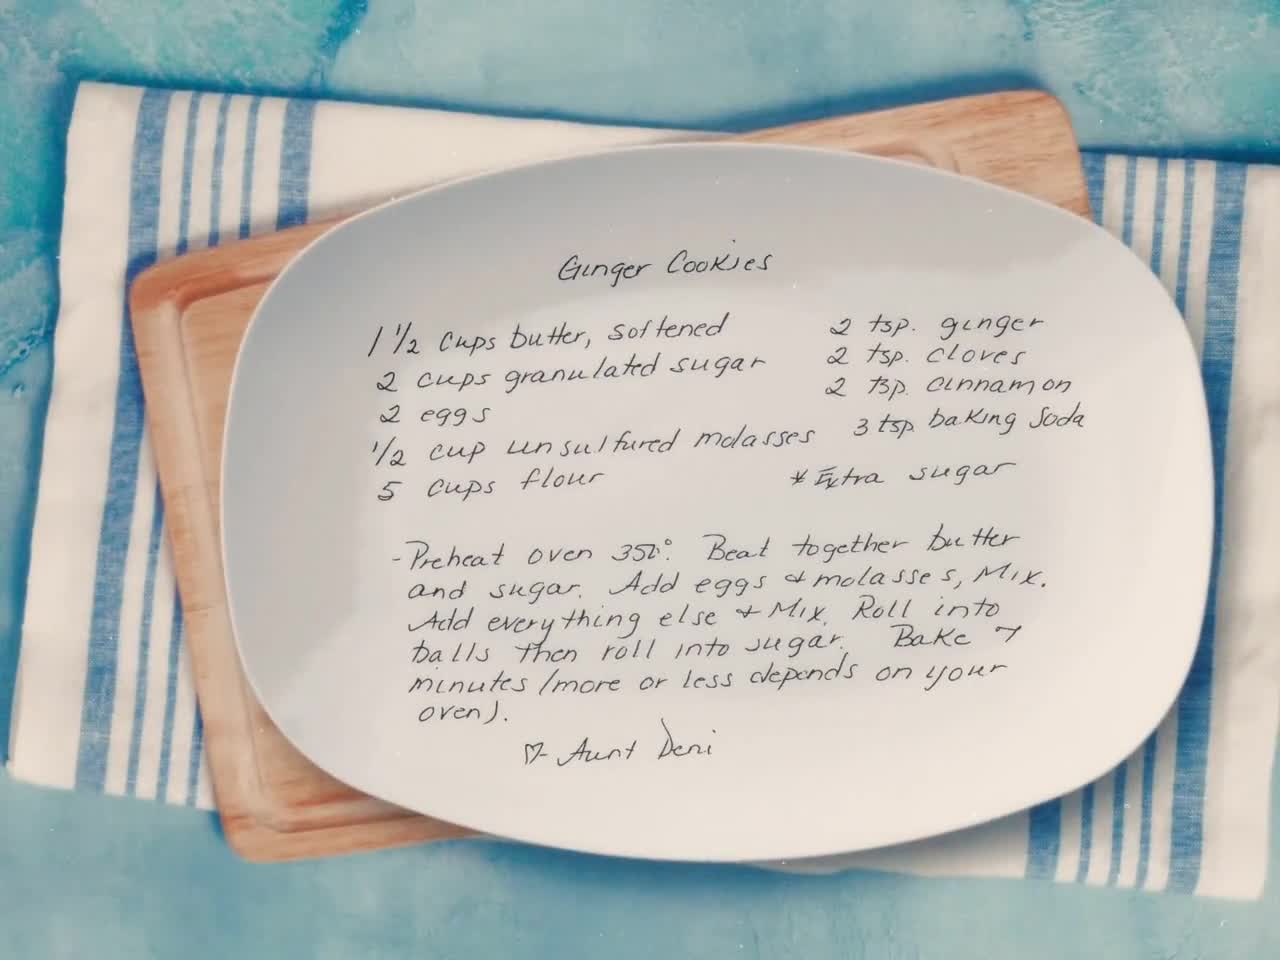 Ginger Cookies
1 1/2 cups butter, softened
2 cups granulated sugar
2 eggs
1/2 cup unsulfured molasses
5 cups flour
2 tsp. ginger
2 tsp. cloves
2 tsp. cinnamon
3 tsp baking soda
* Extra sugar
- Preheat oven 350°. Beat together butter
and sugar. Add eggs & molasses, Mix.
Add everything else & Mix. Roll into
balls then roll into sugar. Bake 7
minutes (more or less depends on your
oven).
♡- Aunt Deni